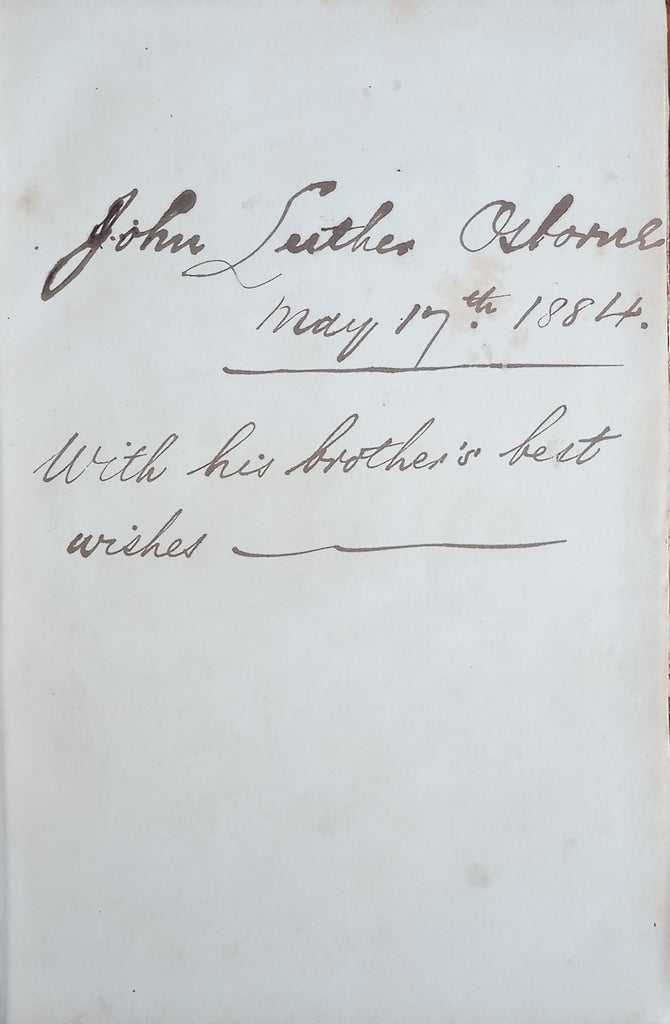 John Luther Osborne
May 17th. 1884.
With his brother's best
wishes